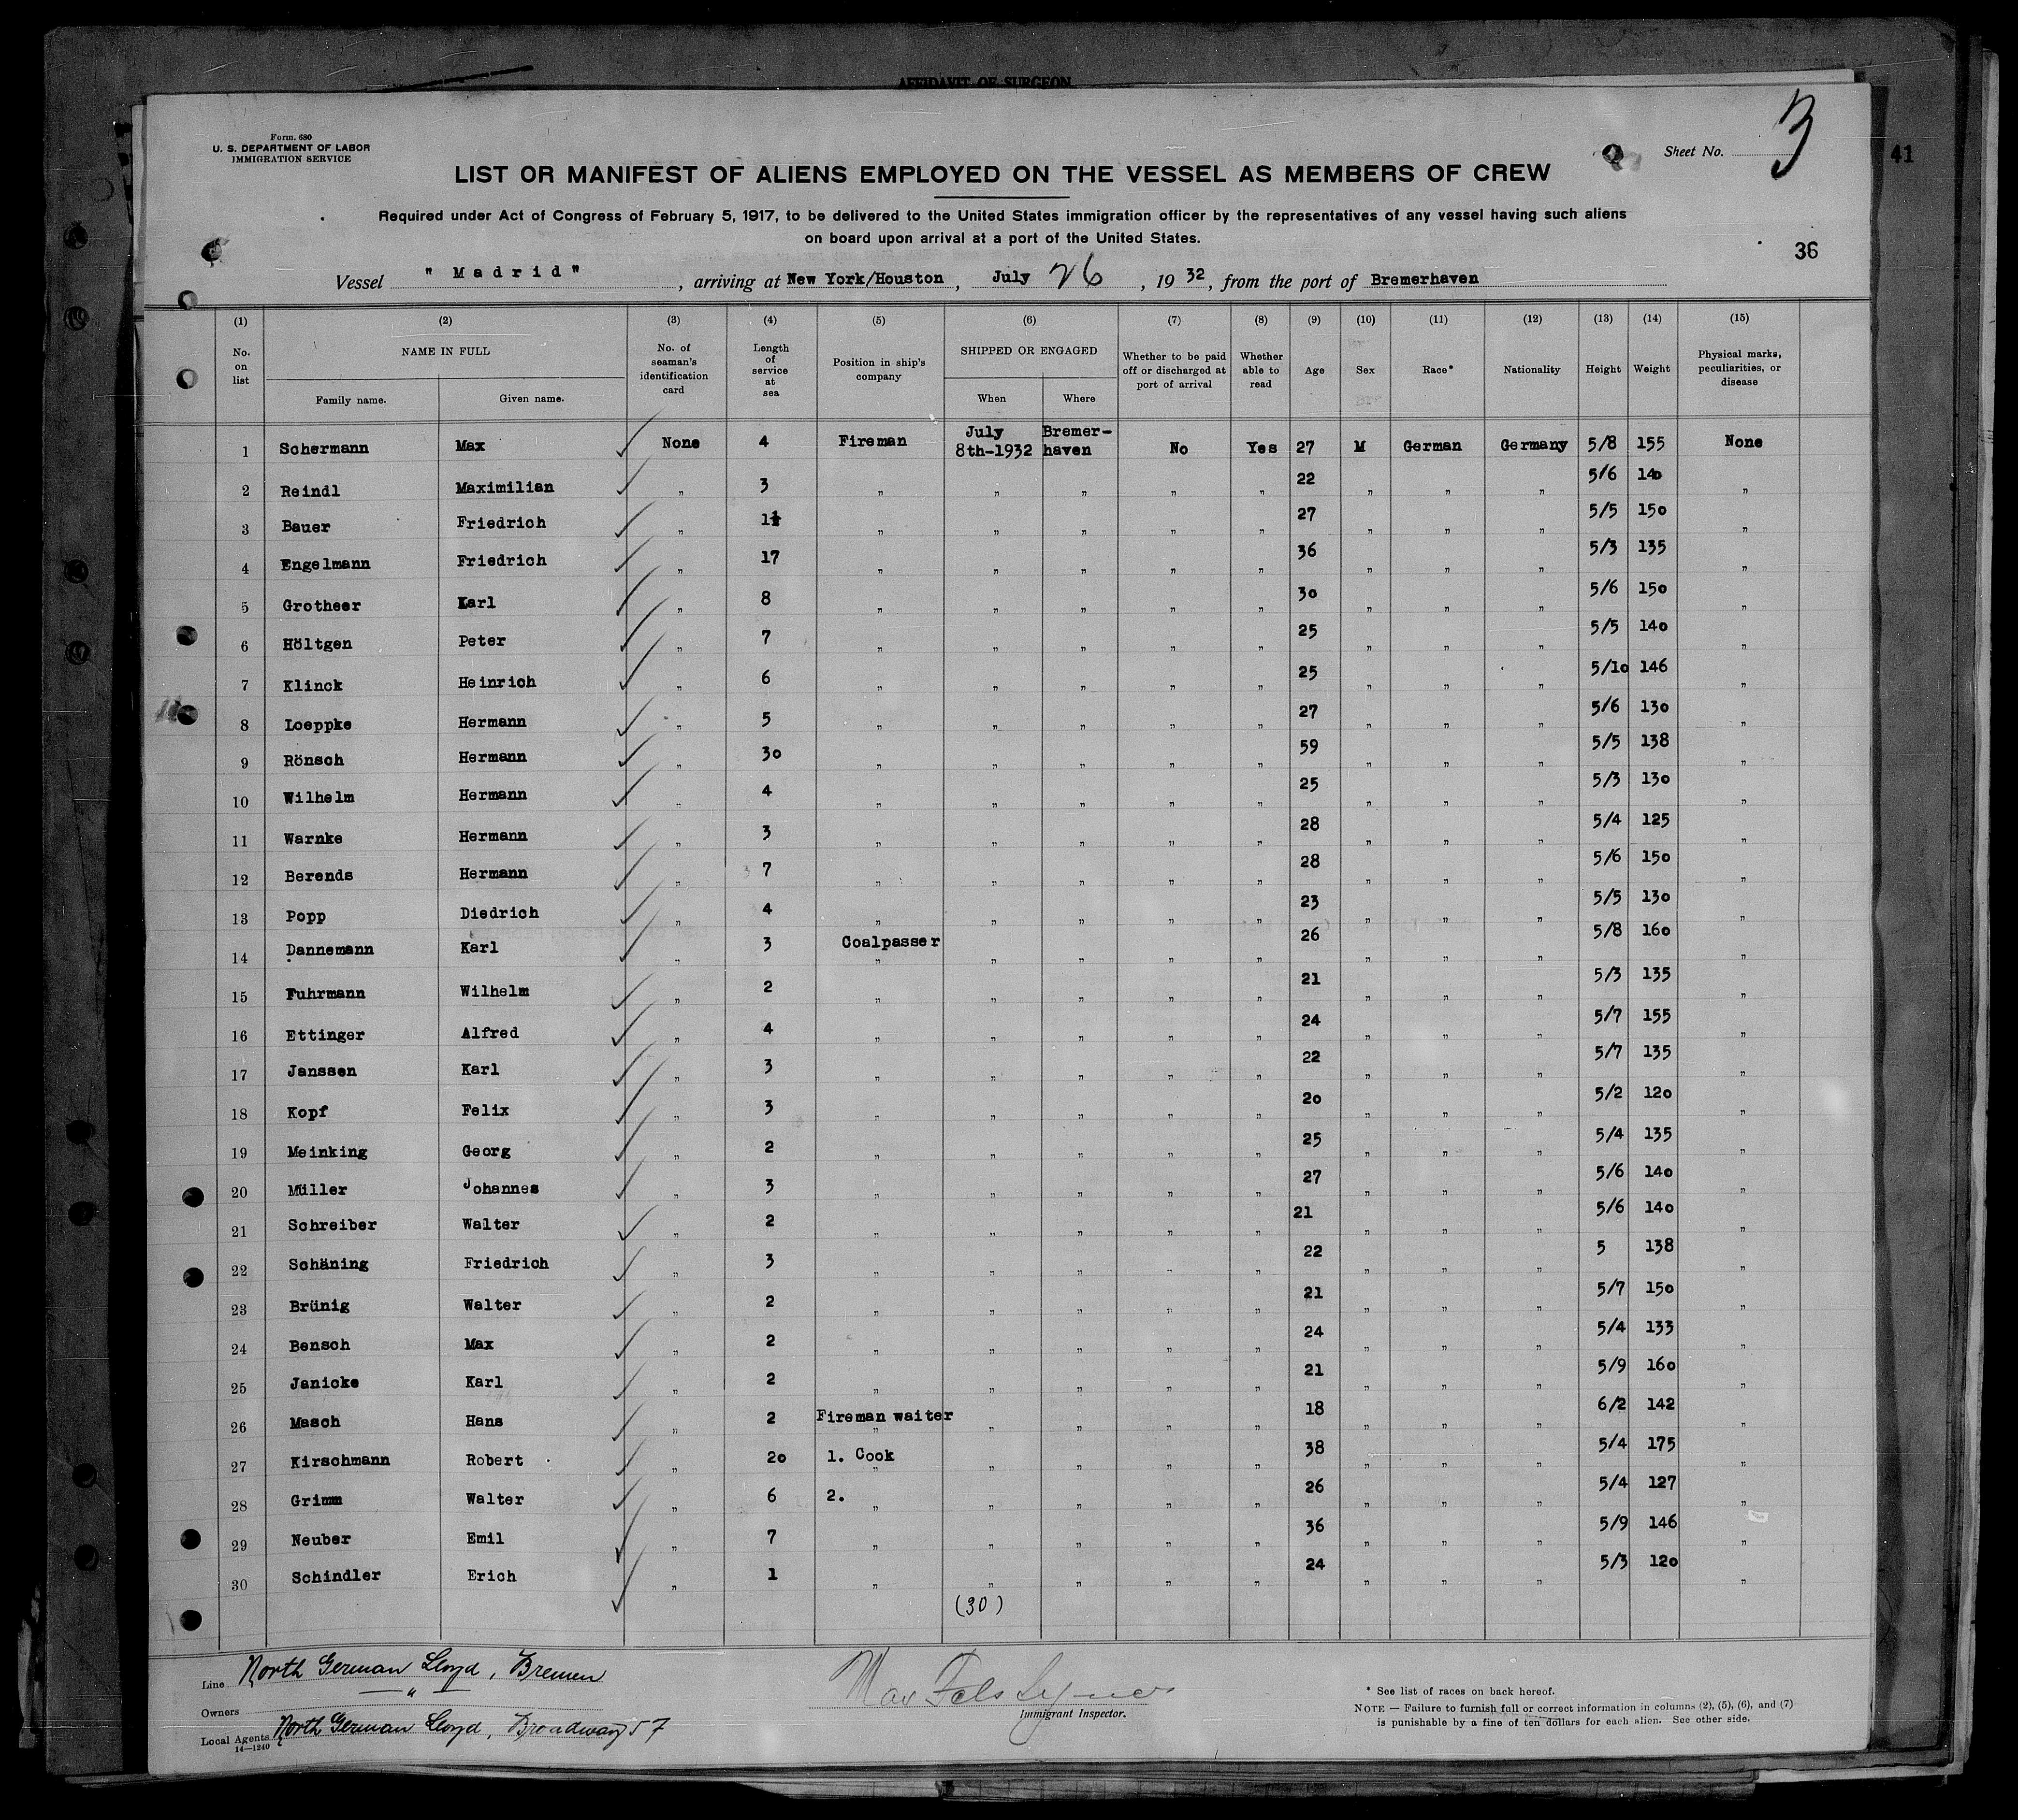 AFFIDAVIT OF SURGEON
Form. 680
U. S. DEPARTMENT OF LABOR
IMMIGRATION SERVICE
Sheet No. 3
41
LIST OR MANIFEST OF ALIENS EMPLOYED ON THE VESSEL AS MEMBERS OF CREW
Required under Act of Congress of February 5, 1917, to be delivered to the United States immigration officer by the representatives of any vessel having such aliens
on board upon arrival at a port of the United States.
36
Vessel "Madrid", arriving at New York/Houston, July 26, 1932, from the port of Bremerhaven
(1) (2) (3) (4) (5) (6) (7) (8) (9) (10) (11) (12) (13) (14) (15)
No. on list NAME IN FULL Family name. Given name. No. of seaman's identification card Length of service at sea Position in ship's company SHIPPED OR ENGAGED When Where Whether to be paid off or discharged at port of arrival Whether able to read Age Sex Race* Nationality Height Weight Physical marks, peculiarities, or disease
1 Schermann Max None 4 Fireman July 8th-1932 Bremer-haven No Yes 27 M German Germany 5/8 155 None
2 Reindl Maximilian " 3 " " " " " 22 " " " 5/6 140 "
3 Bauer Friedrich " 1½ " " " " " 27 " " " 5/5 150 "
4 Engelmann Friedrich " 17 " " " " " 36 " " " 5/3 135 "
5 Grotheer Karl " 8 " " " " " 30 " " " 5/6 150 "
6 Höltgen Peter " 7 " " " " " 25 " " " 5/5 140 "
7 Klinck Heinrich " 6 " " " " " 25 " " " 5/10 146 "
8 Loeppke Hermann " 5 " " " " " 27 " " " 5/6 130 "
9 Rönsch Hermann " 30 " " " " " 59 " " " 5/5 138 "
10 Wilhelm Hermann " 4 " " " " " 25 " " " 5/3 130 "
11 Warnke Hermann " 3 " " " " " 28 " " " 5/4 125 "
12 Berends Hermann " 7 " " " " " 28 " " " 5/6 150 "
13 Popp Diedrich " 4 " " " " " 23 " " " 5/5 130 "
14 Dannemann Karl " 3 Coalpasser " " " " " 26 " " " 5/8 160 "
15 Fuhrmann Wilhelm " 2 " " " " " 21 " " " 5/3 135 "
16 Ettinger Alfred " 4 " " " " " 24 " " " 5/7 155 "
17 Janssen Karl " 3 " " " " " 22 " " " 5/7 135 "
18 Kopf Felix " 3 " " " " " 20 " " " 5/2 120 "
19 Meinking Georg " 2 " " " " " 25 " " " 5/4 135 "
20 Müller Johannes " 3 " " " " " 27 " " " 5/6 140 "
21 Schreiber Walter " 2 " " " " " 21 " " " 5/6 140 "
22 Schäning Friedrich " 3 " " " " " 22 " " " 5 138 "
23 Brünig Walter " 2 " " " " " 21 " " " 5/7 150 "
24 Bensch Max " 2 " " " " " 24 " " " 5/4 133 "
25 Janicke Karl " 2 " " " " " 21 " " " 5/9 160 "
26 Masch Hans " 2 Fireman waiter " " " " " 18 " " " 6/2 142 "
27 Kirschmann Robert " 20 1. Cook " " " " " 38 " " " 5/4 175 "
28 Grimm Walter " 6 2. " " " " " 26 " " " 5/4 127 "
29 Neuber Emil " 7 " " " " " 36 " " " 5/9 146 "
30 Schindler Erich " 1 " " " " " 24 " " " 5/3 120 "
(30)
Line North German Lloyd, Bremen
Owners "
Local Agents North German Lloyd, Broadway 57
14—1240
Max
Immigrant Inspector.
* See list of races on back hereof.
NOTE — Failure to furnish full or correct information in columns (2), (5), (6), and (7)
is punishable by a fine of ten dollars for each alien. See other side.